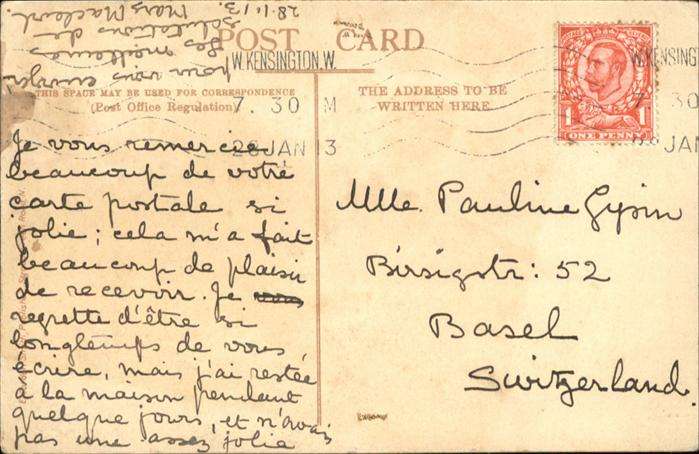 POST CARD
W.KENSINGTON.W.
7. 30 M
28 JAN 13
THIS SPACE MAY BE USED FOR CORRESPONDENCE
(Post Office Regulation)
THE ADDRESS TO BE
WRITTEN HERE.
W.KENSING
7 30
JAN
1 1
ONE PENNY
Je vous remercie
beaucoup de votre
carte postale si
jolie; cela m'a fait
beaucoup de plaisir
de recevoir. Je
regrette d'être si
longtemps de vous
écrire, mais j'ai restée
à la maison pendant
quelque jours, et n'avais
pas une assez jolie
pour vous envoyer
Les meilleures
salutations de
28.1.13.
Mlle. Pauline Gysin
Birsigstr: 52
Basel
Switzerland.